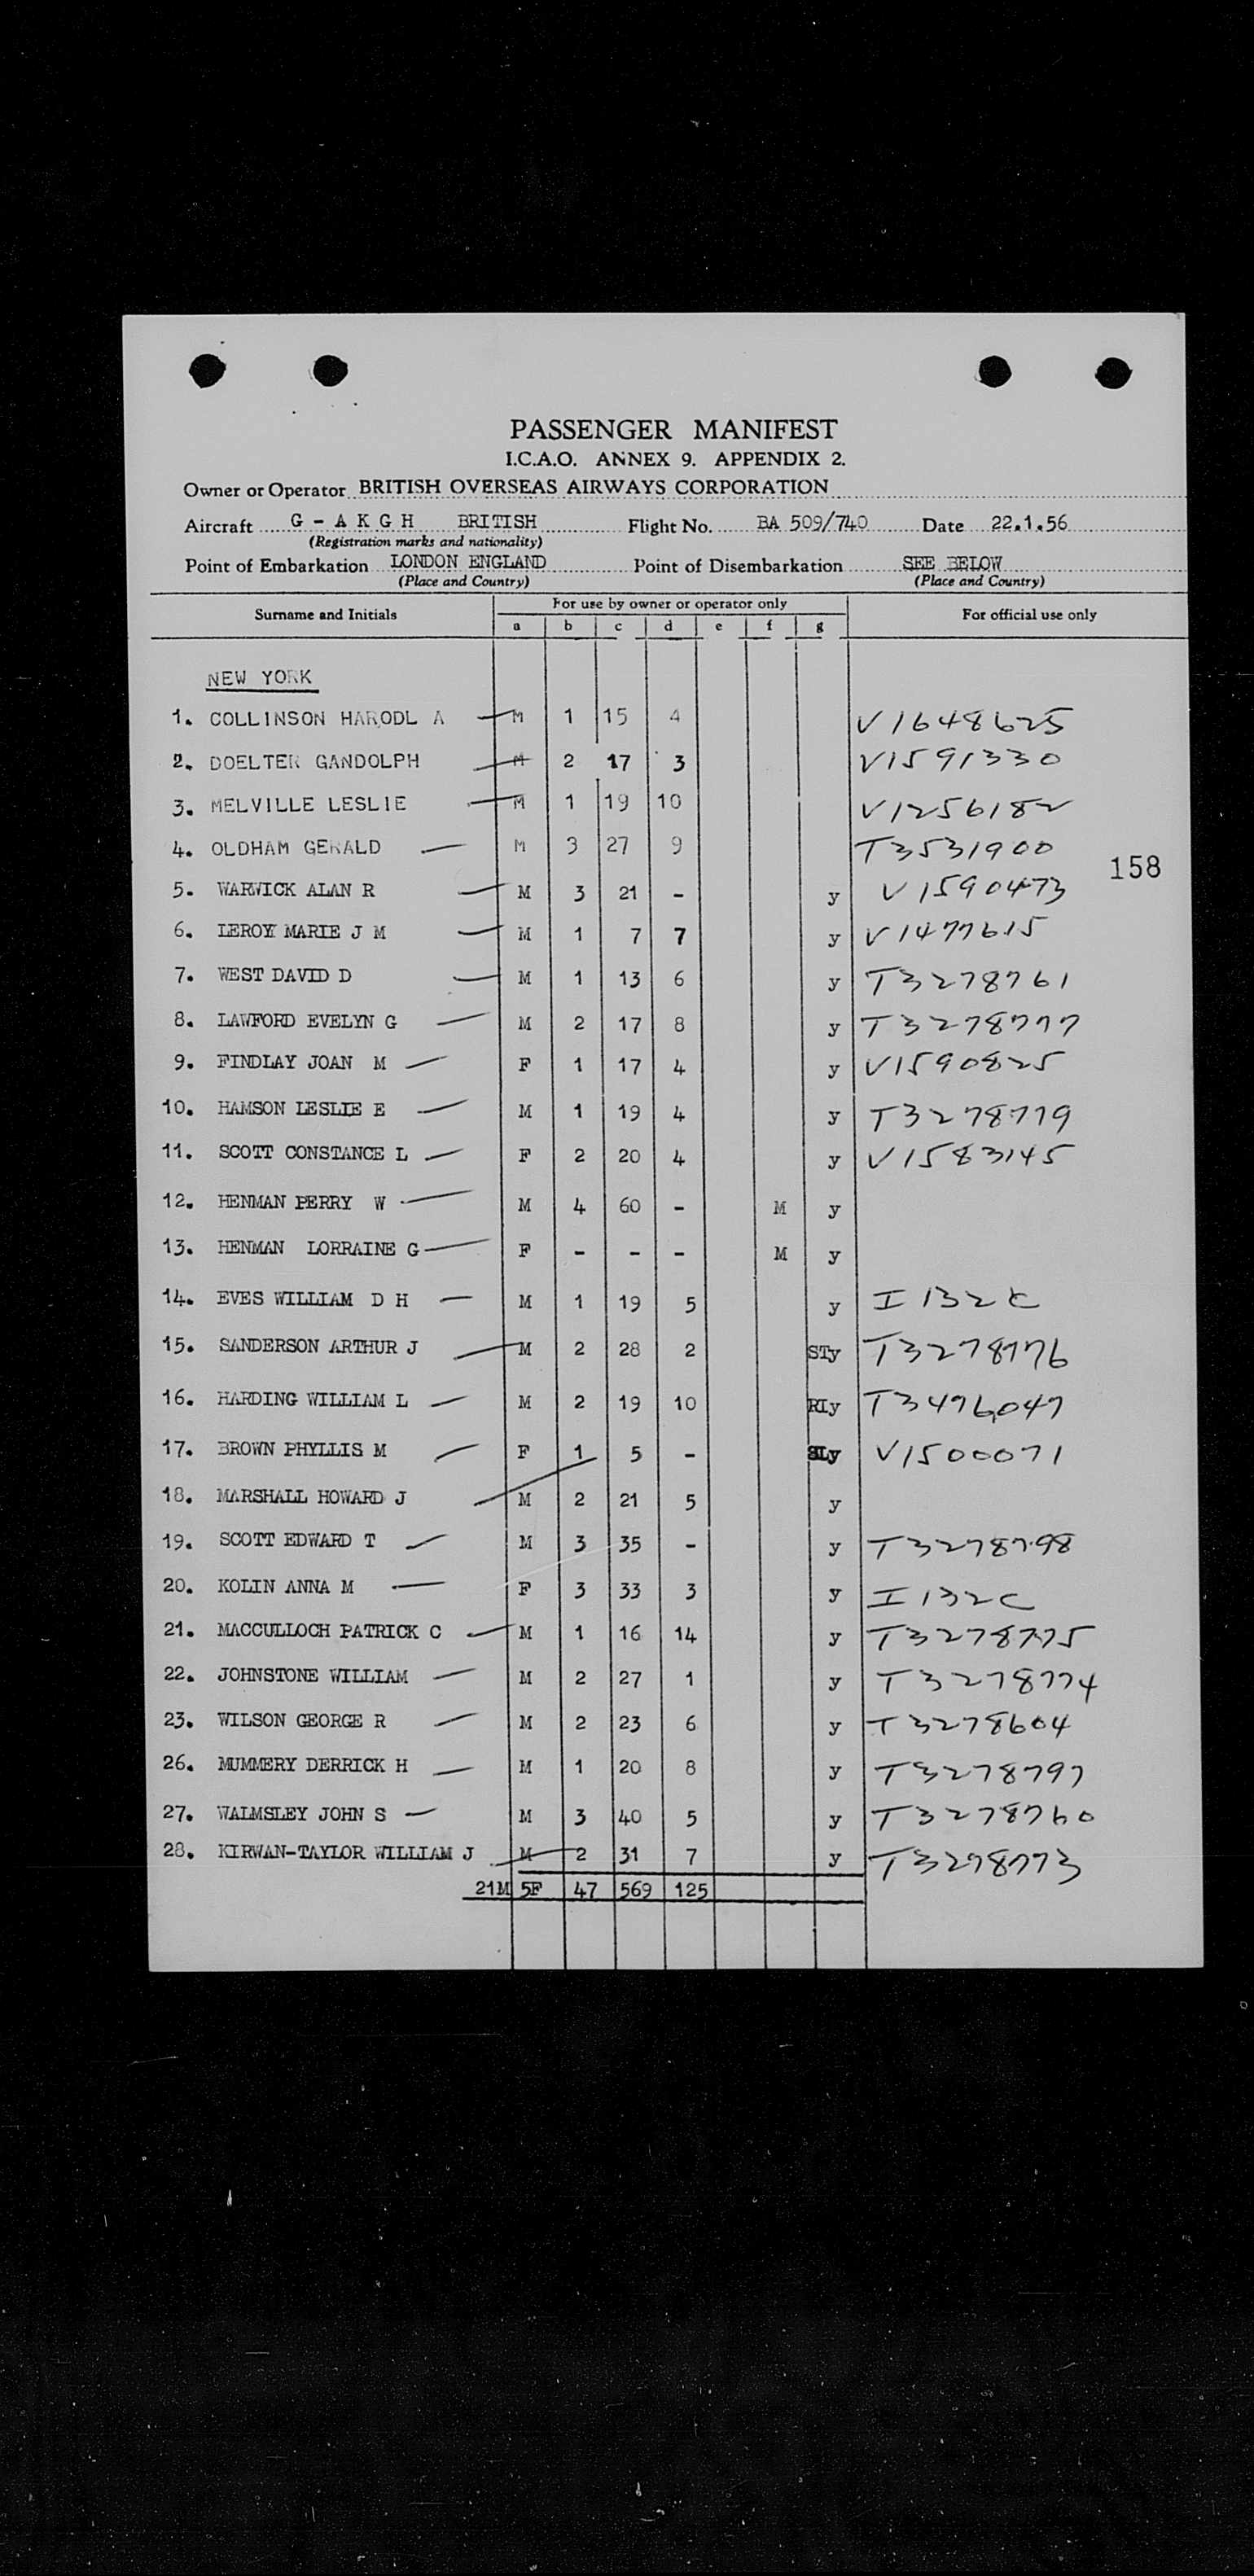 PASSENGER MANIFEST
I.C.A.O. ANNEX 9. APPENDIX 2.
Owner or Operator BRITISH OVERSEAS AIRWAYS CORPORATION
Aircraft G - A K G H BRITISH Flight No. BA 509/740 Date 22.1.56
(Registration marks and nationality)
Point of Embarkation LONDON ENGLAND Point of Disembarkation SEE BELOW
(Place and Country) (Place and Country)
Surname and Initials For use by owner or operator only For official use only
a b c d e f g
NEW YORK
1. COLLINSON HARODL A M 1 15 4 V1648625
2. DOELTER GANDOLPH M 2 17 3 V1591330
3. MELVILLE LESLIE M 1 19 10 V1256182
4. OLDHAM GERALD M 3 27 9 T3531900
158
5. WARWICK ALAN R M 3 21 - y V1590473
6. LEROY MARIE J M M 1 7 7 y V1477615
7. WEST DAVID D M 1 13 6 y T3278761
8. LAWFORD EVELYN G M 2 17 8 y T3278777
9. FINDLAY JOAN M F 1 17 4 y V1590825
10. HAMSON LESLIE E M 1 19 4 y T3278779
11. SCOTT CONSTANCE L F 2 20 4 y V1583145
12. HENMAN PERRY W M 4 60 - M y
13. HENMAN LORRAINE G F - - - M y
14. EVES WILLIAM D H M 1 19 5 y I 132 C
15. SANDERSON ARTHUR J M 2 28 2 STy T3278776
16. HARDING WILLIAM L M 2 19 10 RIy T3476047
17. BROWN PHYLLIS M F 1 5 - V1500071
18. MARSHALL HOWARD J M 2 21 5 y
19. SCOTT EDWARD T M 3 35 - y T3278798
20. KOLIN ANNA M F 3 33 3 y I 132 C
21. MACCULLOCH PATRICK C M 1 16 14 y T3278775
22. JOHNSTONE WILLIAM M 2 27 1 y T3278774
23. WILSON GEORGE R M 2 23 6 y T3278604
26. MUMMERY DERRICK H M 1 20 8 y T3278797
27. WALMSLEY JOHN S M 3 40 5 y T3278760
28. KIRWAN-TAYLOR WILLIAM J M 2 31 7 y T3278773
21M 5F 47 569 125